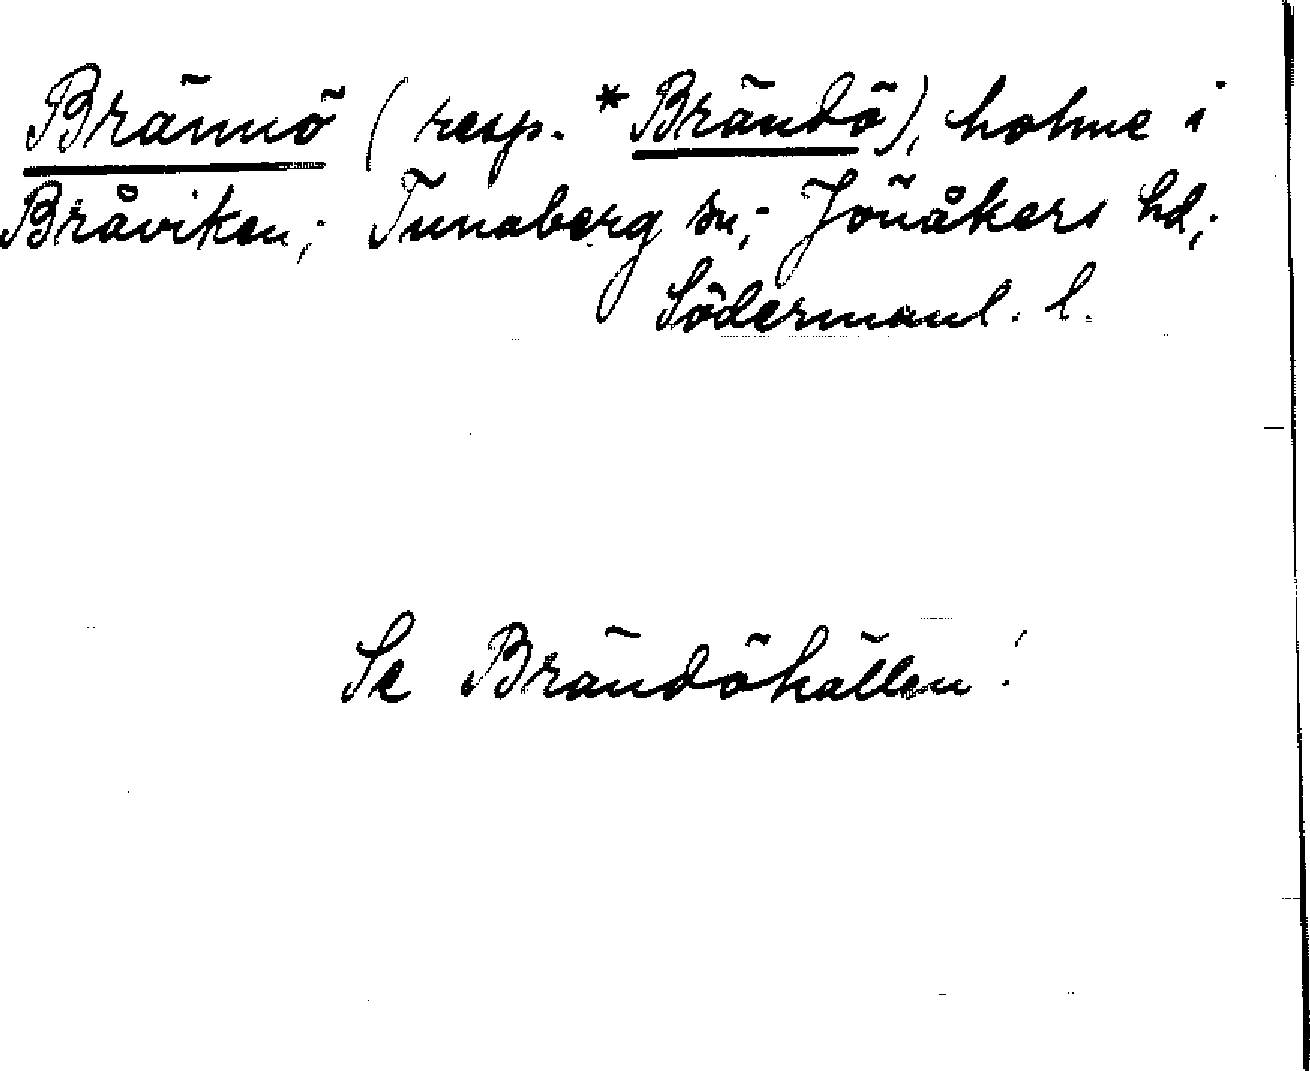 Brännö (resp. *Brändö), holme i
Bråviken; Tunaberg sn; Jönåkers hd;
Södermanl. l.
Se Brändöhällen!